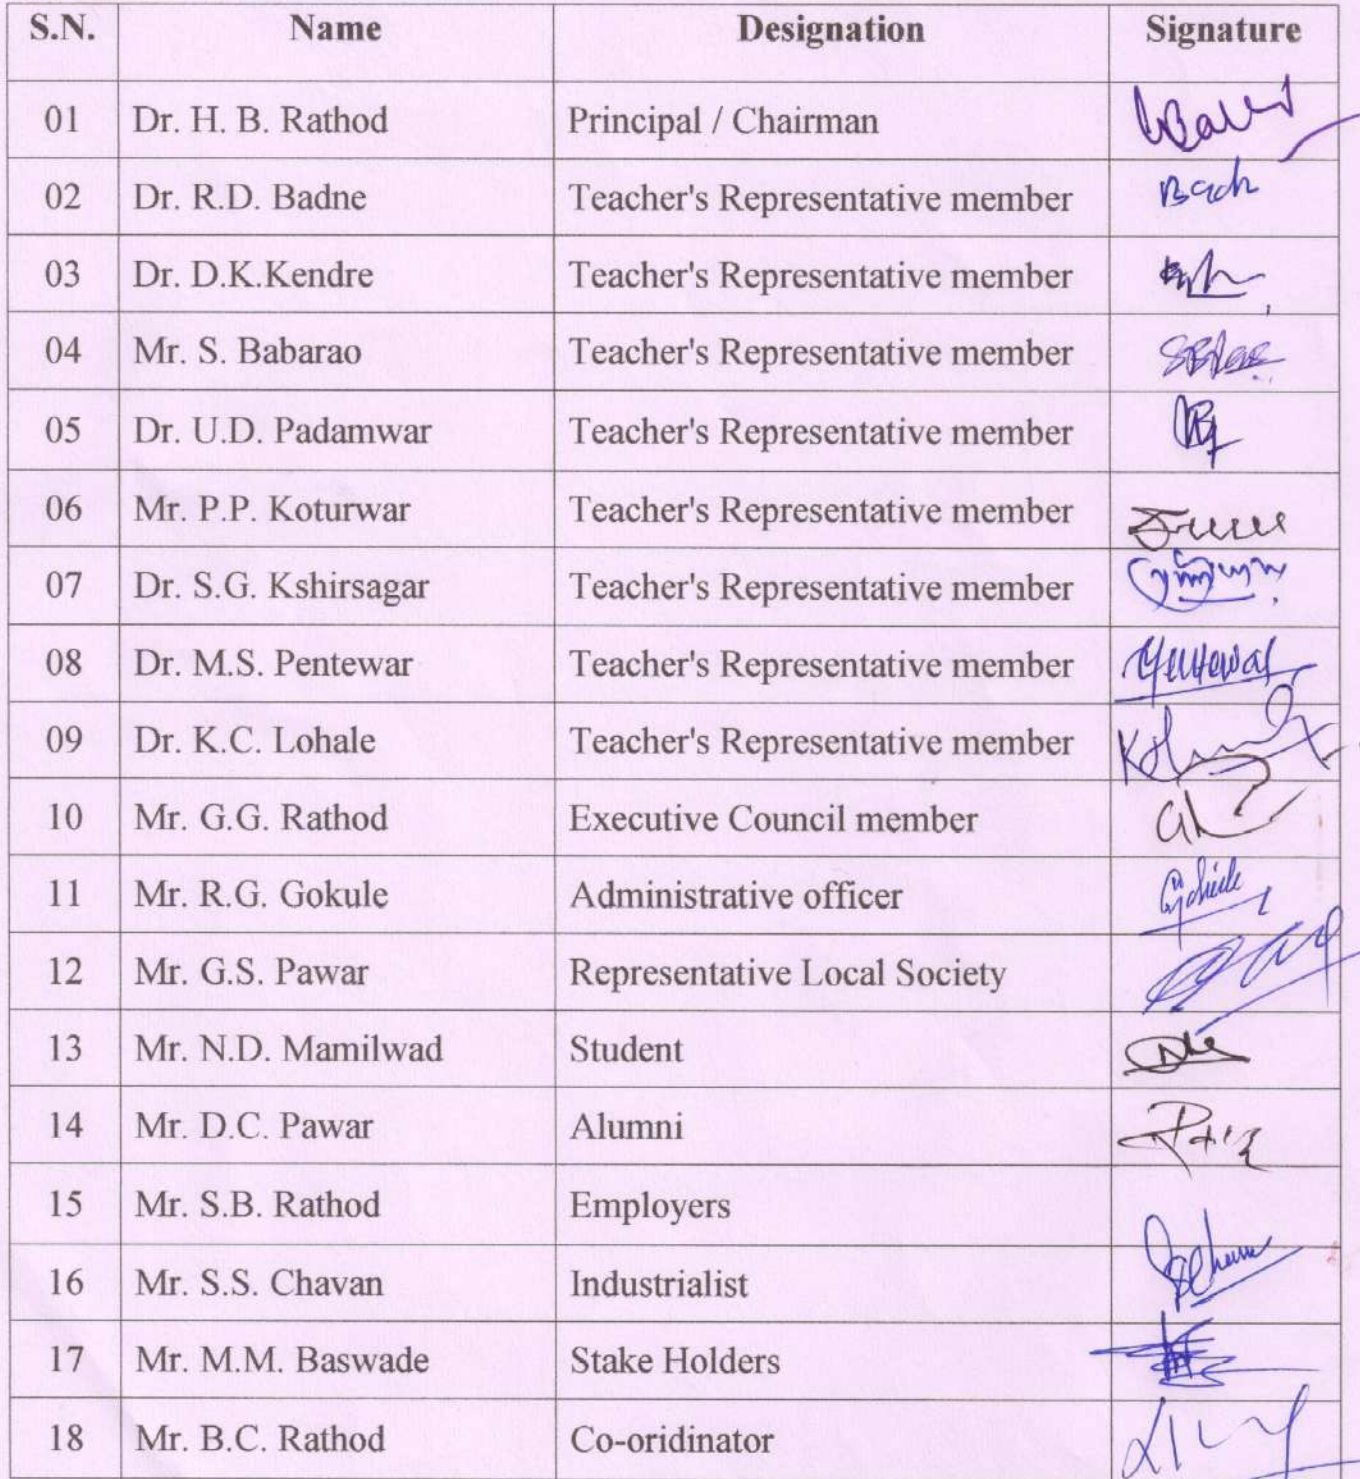 S.N. Name Designation Signature
01 Dr. H. B. Rathod Principal / Chairman
02 Dr. R.D. Badne Teacher's Representative member
03 Dr. D.K.Kendre Teacher's Representative member
04 Mr. S. Babarao Teacher's Representative member
05 Dr. U.D. Padamwar Teacher's Representative member
06 Mr. P.P. Koturwar Teacher's Representative member
07 Dr. S.G. Kshirsagar Teacher's Representative member
08 Dr. M.S. Pentewar Teacher's Representative member
09 Dr. K.C. Lohale Teacher's Representative member
10 Mr. G.G. Rathod Executive Council member
11 Mr. R.G. Gokule Administrative officer
12 Mr. G.S. Pawar Representative Local Society
13 Mr. N.D. Mamilwad Student
14 Mr. D.C. Pawar Alumni
15 Mr. S.B. Rathod Employers
16 Mr. S.S. Chavan Industrialist
17 Mr. M.M. Baswade Stake Holders
18 Mr. B.C. Rathod Co-oridinator